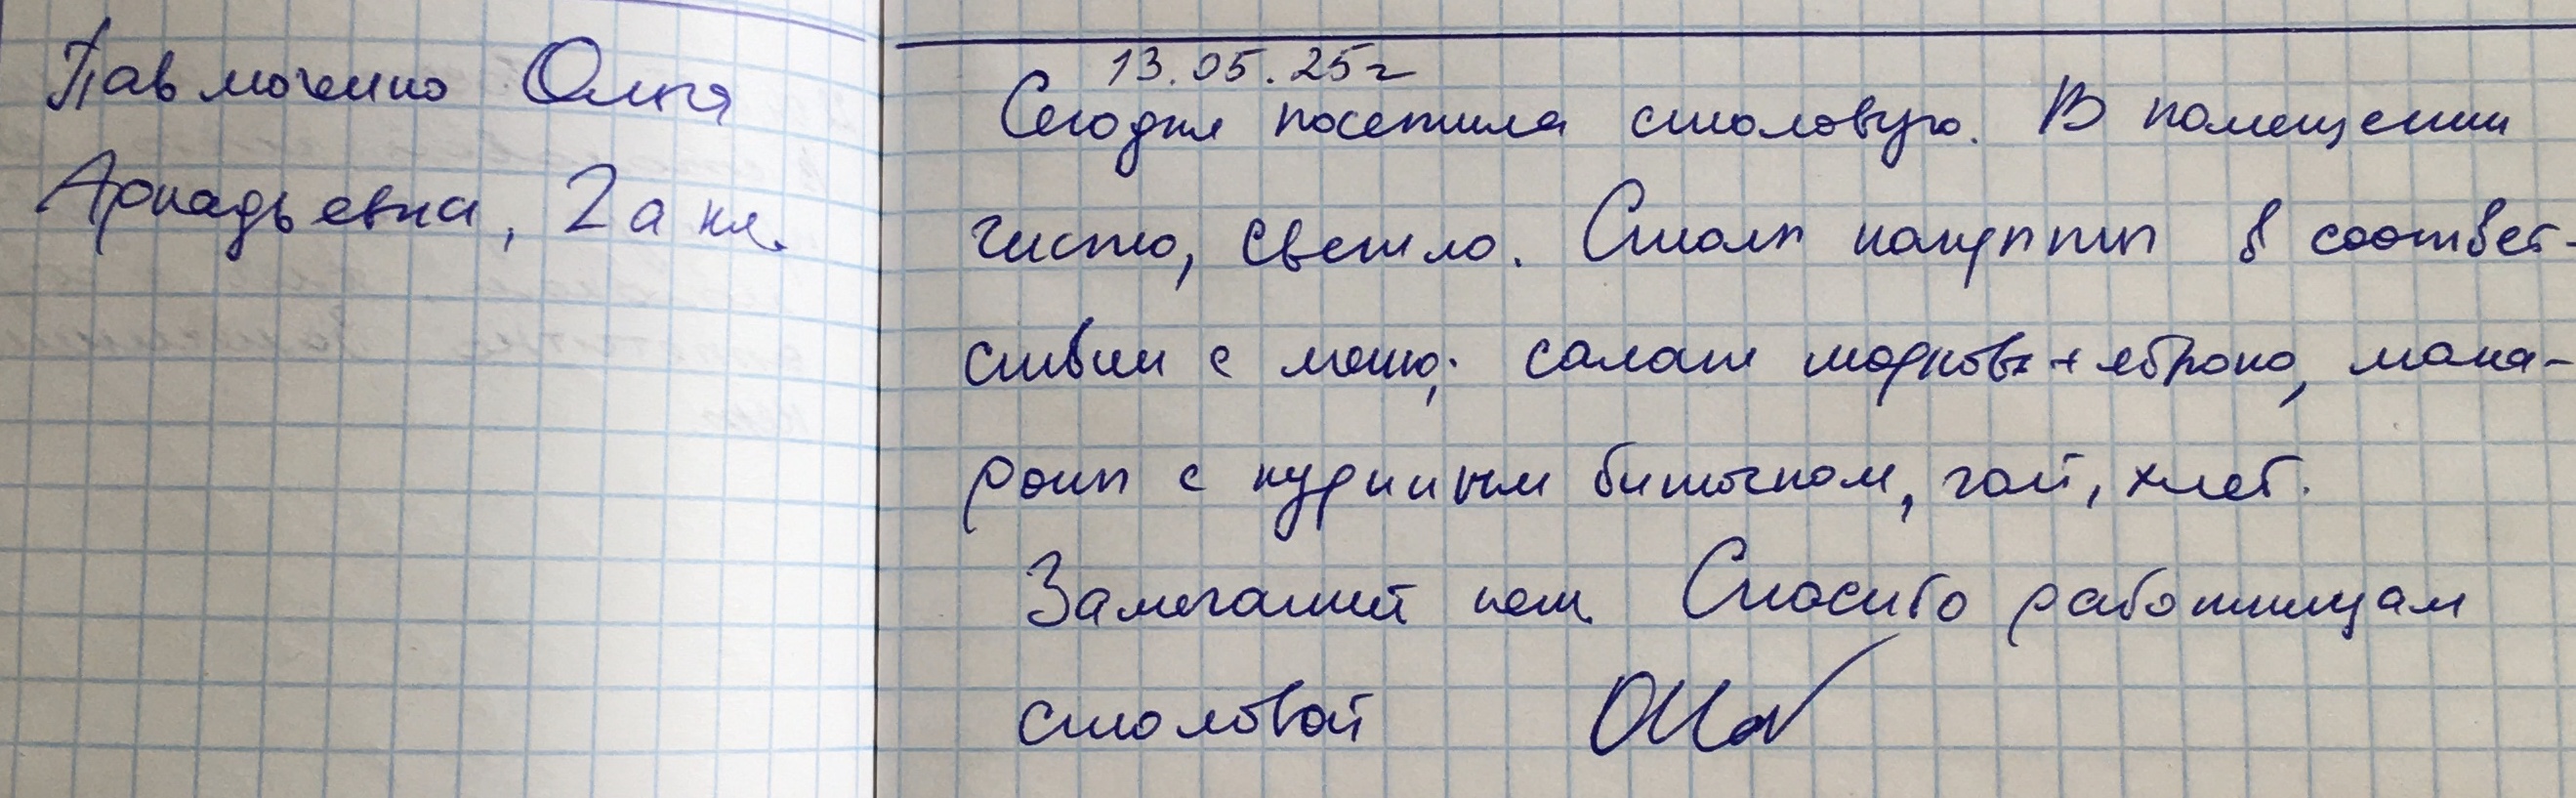 Павлюченко Ольга
Аркадьевна, 2а кл.
13.05.25г
Сегодня посетила столовую. В помещении
чисто, светло. Столы накрыты в соответ-
ствии с меню: салат морковь + яблоко, мака-
роны с куриным биточком, чай, хлеб.
Замечаний нет. Спасибо работницам
столовой